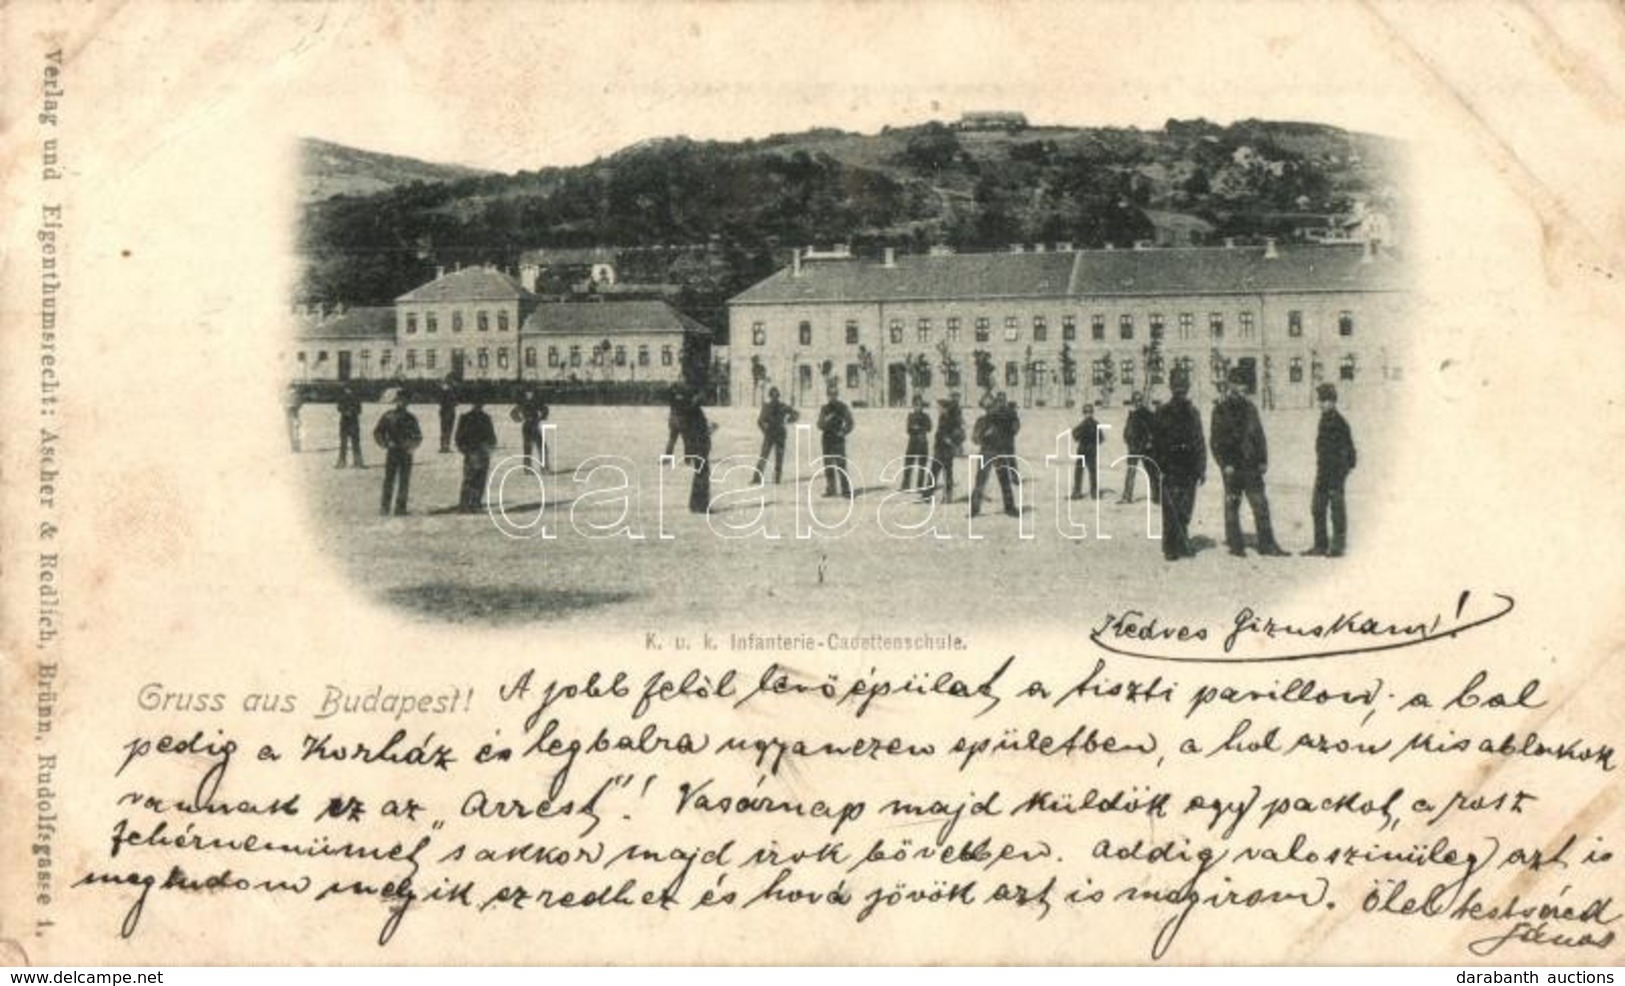 Verlag und Eigenthumsrecht: Ascher & Redlich, Brünn, Rudolfsgasse 1.
darabanth
K. u. k. Infanterie-Cadettenschule.
Kedves Gizuskám!
Gruss aus Budapest!
A jobb felöl levö épület, a tiszti pavillon; a bal
pedig a Korház és legbalra ugyanezen epületben, a hol azon kis ablakok
vannak ez az „Arrest"! Vasárnap majd küldök egy packot, a rosz
fehérnemümet, s akkor majd irok bövebben. Addig valoszinüleg azt is
megtudom melyik ezredhez és hová jövök azt is megirom. Ölel testvéred
János
www.delcampe.net
darabanth auctions